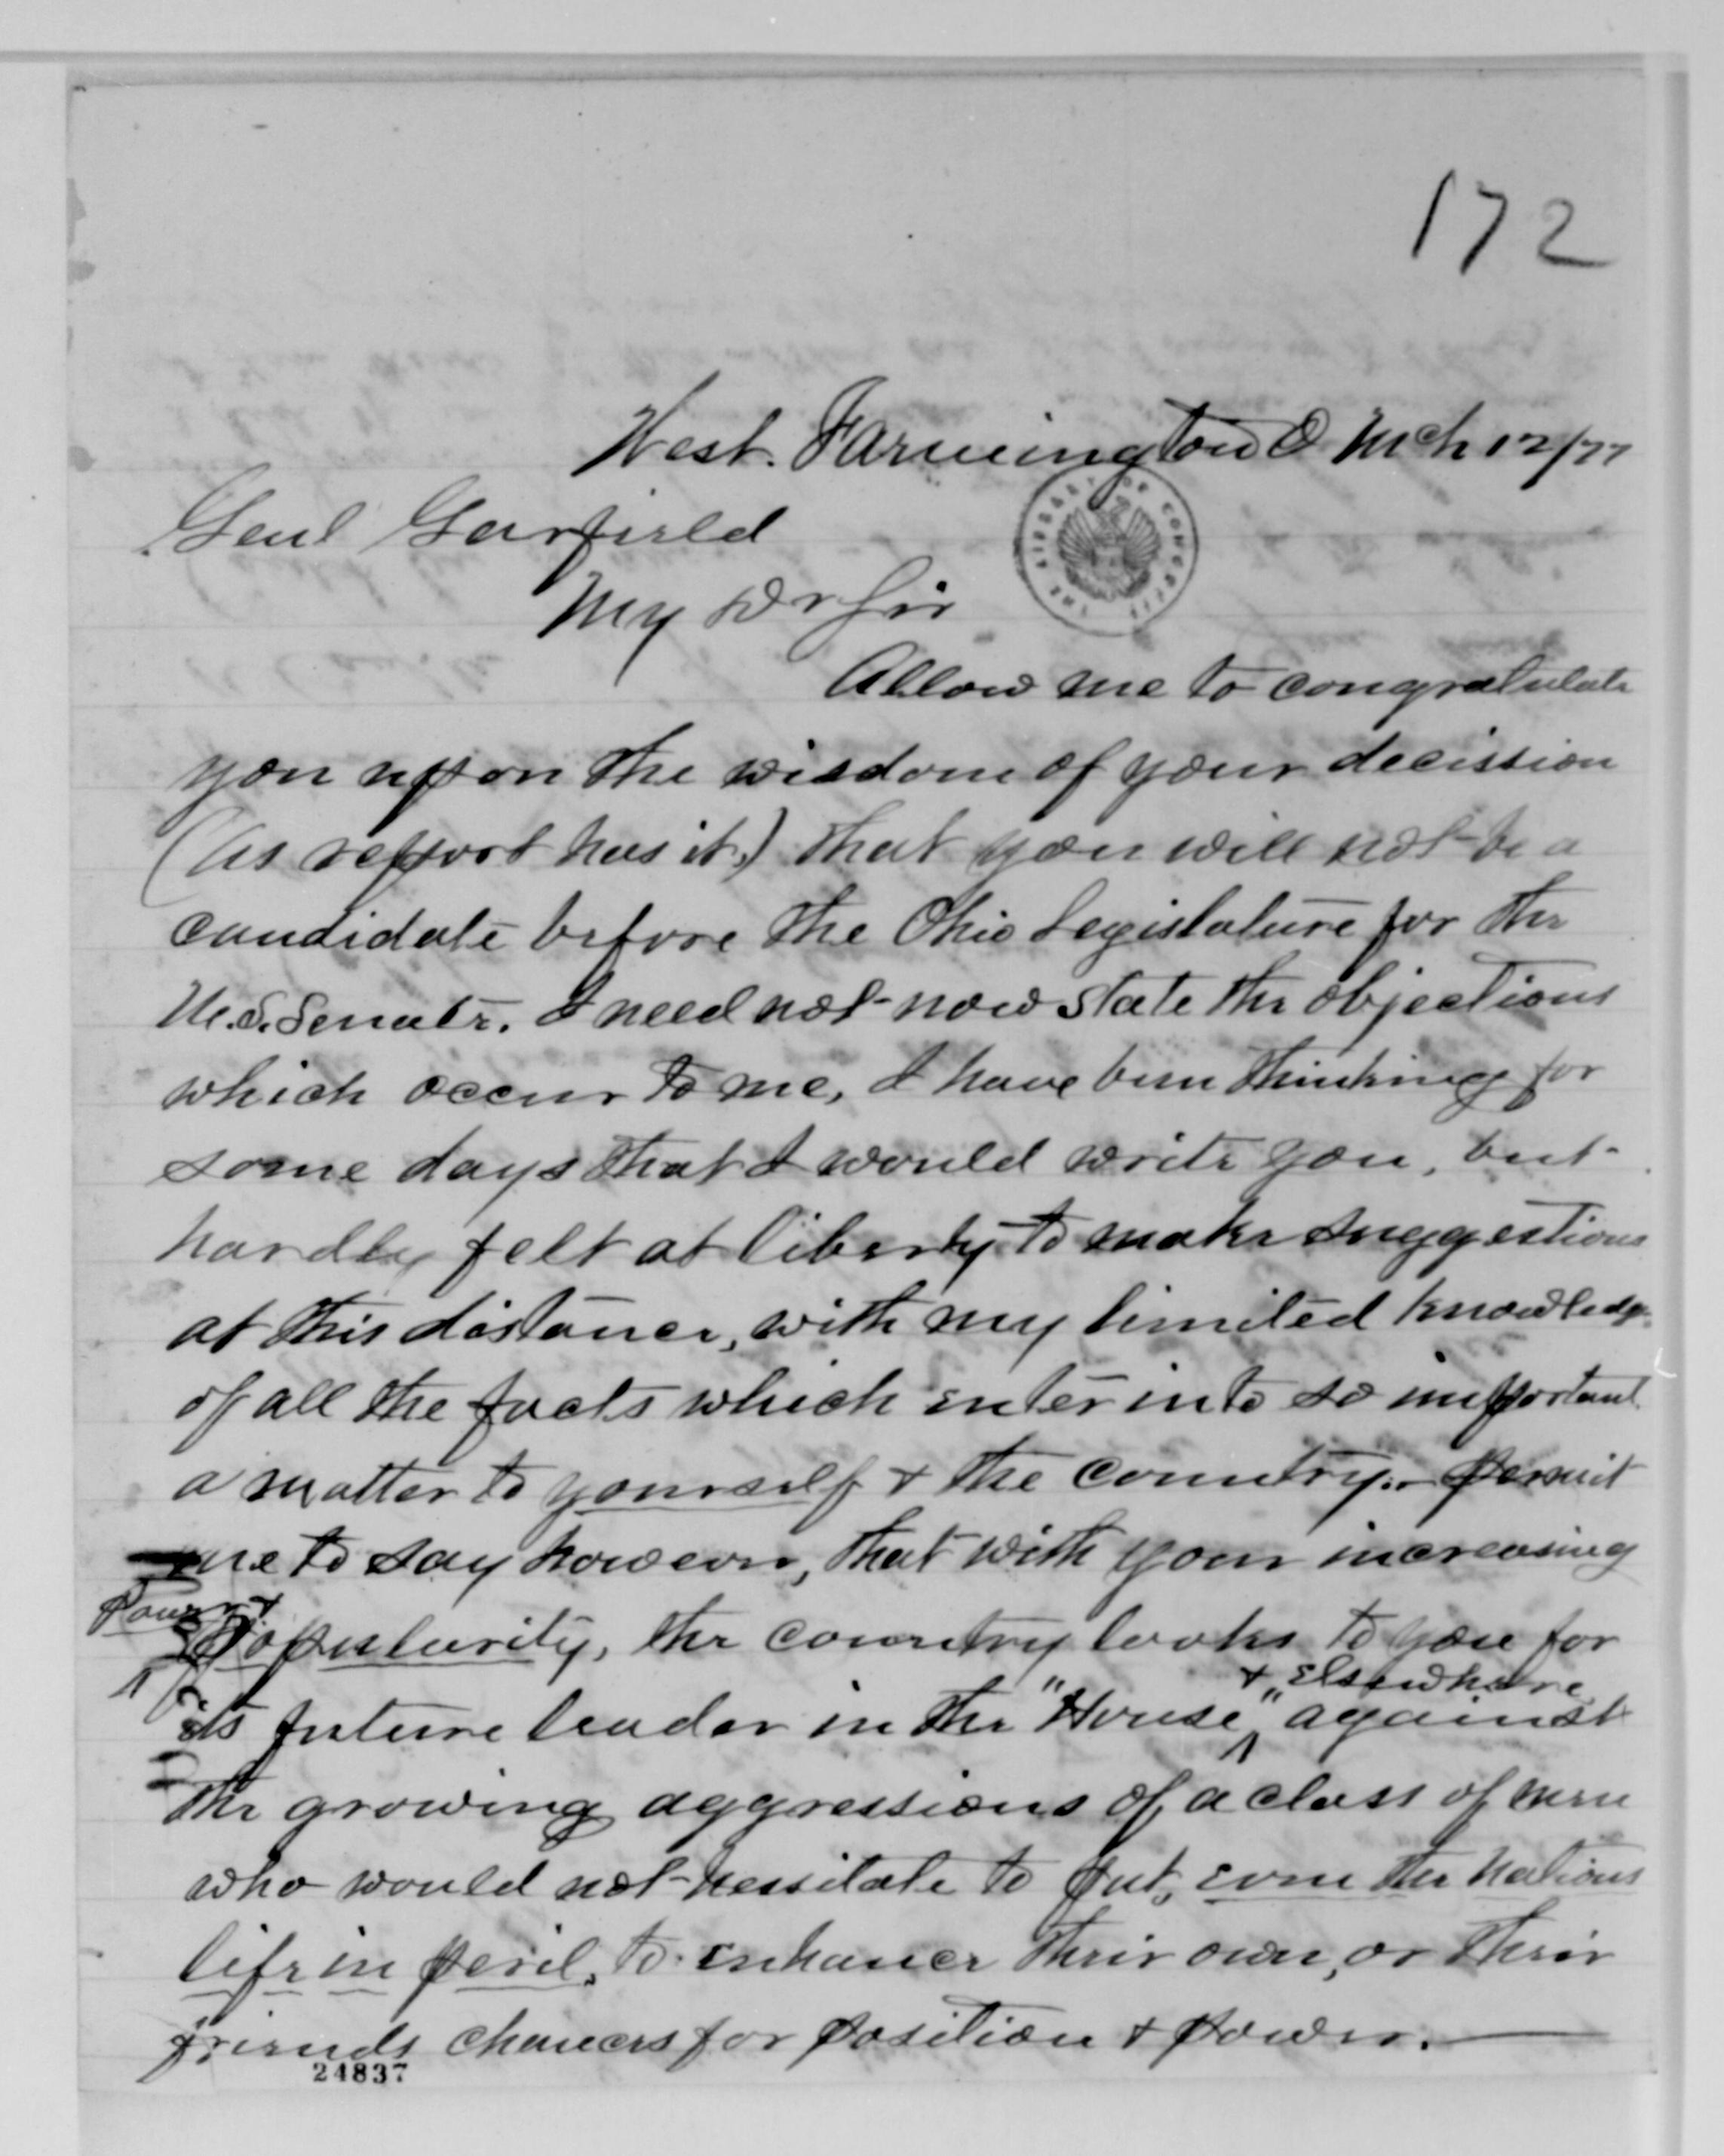 172
West. Farmington O Mch 12/77
Genl Garfield
My Dr Sir
THE LIBRARY OF CONGRESS
Allow me to congratulate
you upon the wisdom of your decission
(as report has it,) that you will not be a
candidate before the Ohio Legislature for the
U.S. Senate. I need not now state the objections
which occur to me, I have been thinking for
some days that I would write you, but
hardly felt at liberty to make suggestions
at this distance, with my limited knowledge
of all the facts which enter into so important
a matter to yourself & the country. – Permit
me to say however, that with your increasing
Power &
Popularity, the country looks to you for
& Elsewhere
its future leader in the "House" against
the growing aggressions of a class of men
who would not hessitate to put, even the Nations
life in peril, to enhance their own, or their
friends chances for position & power. —
24837